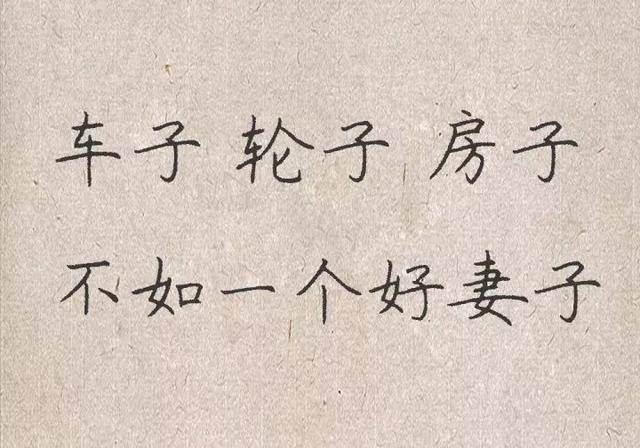 车子 轮子 房子
不如一个好妻子